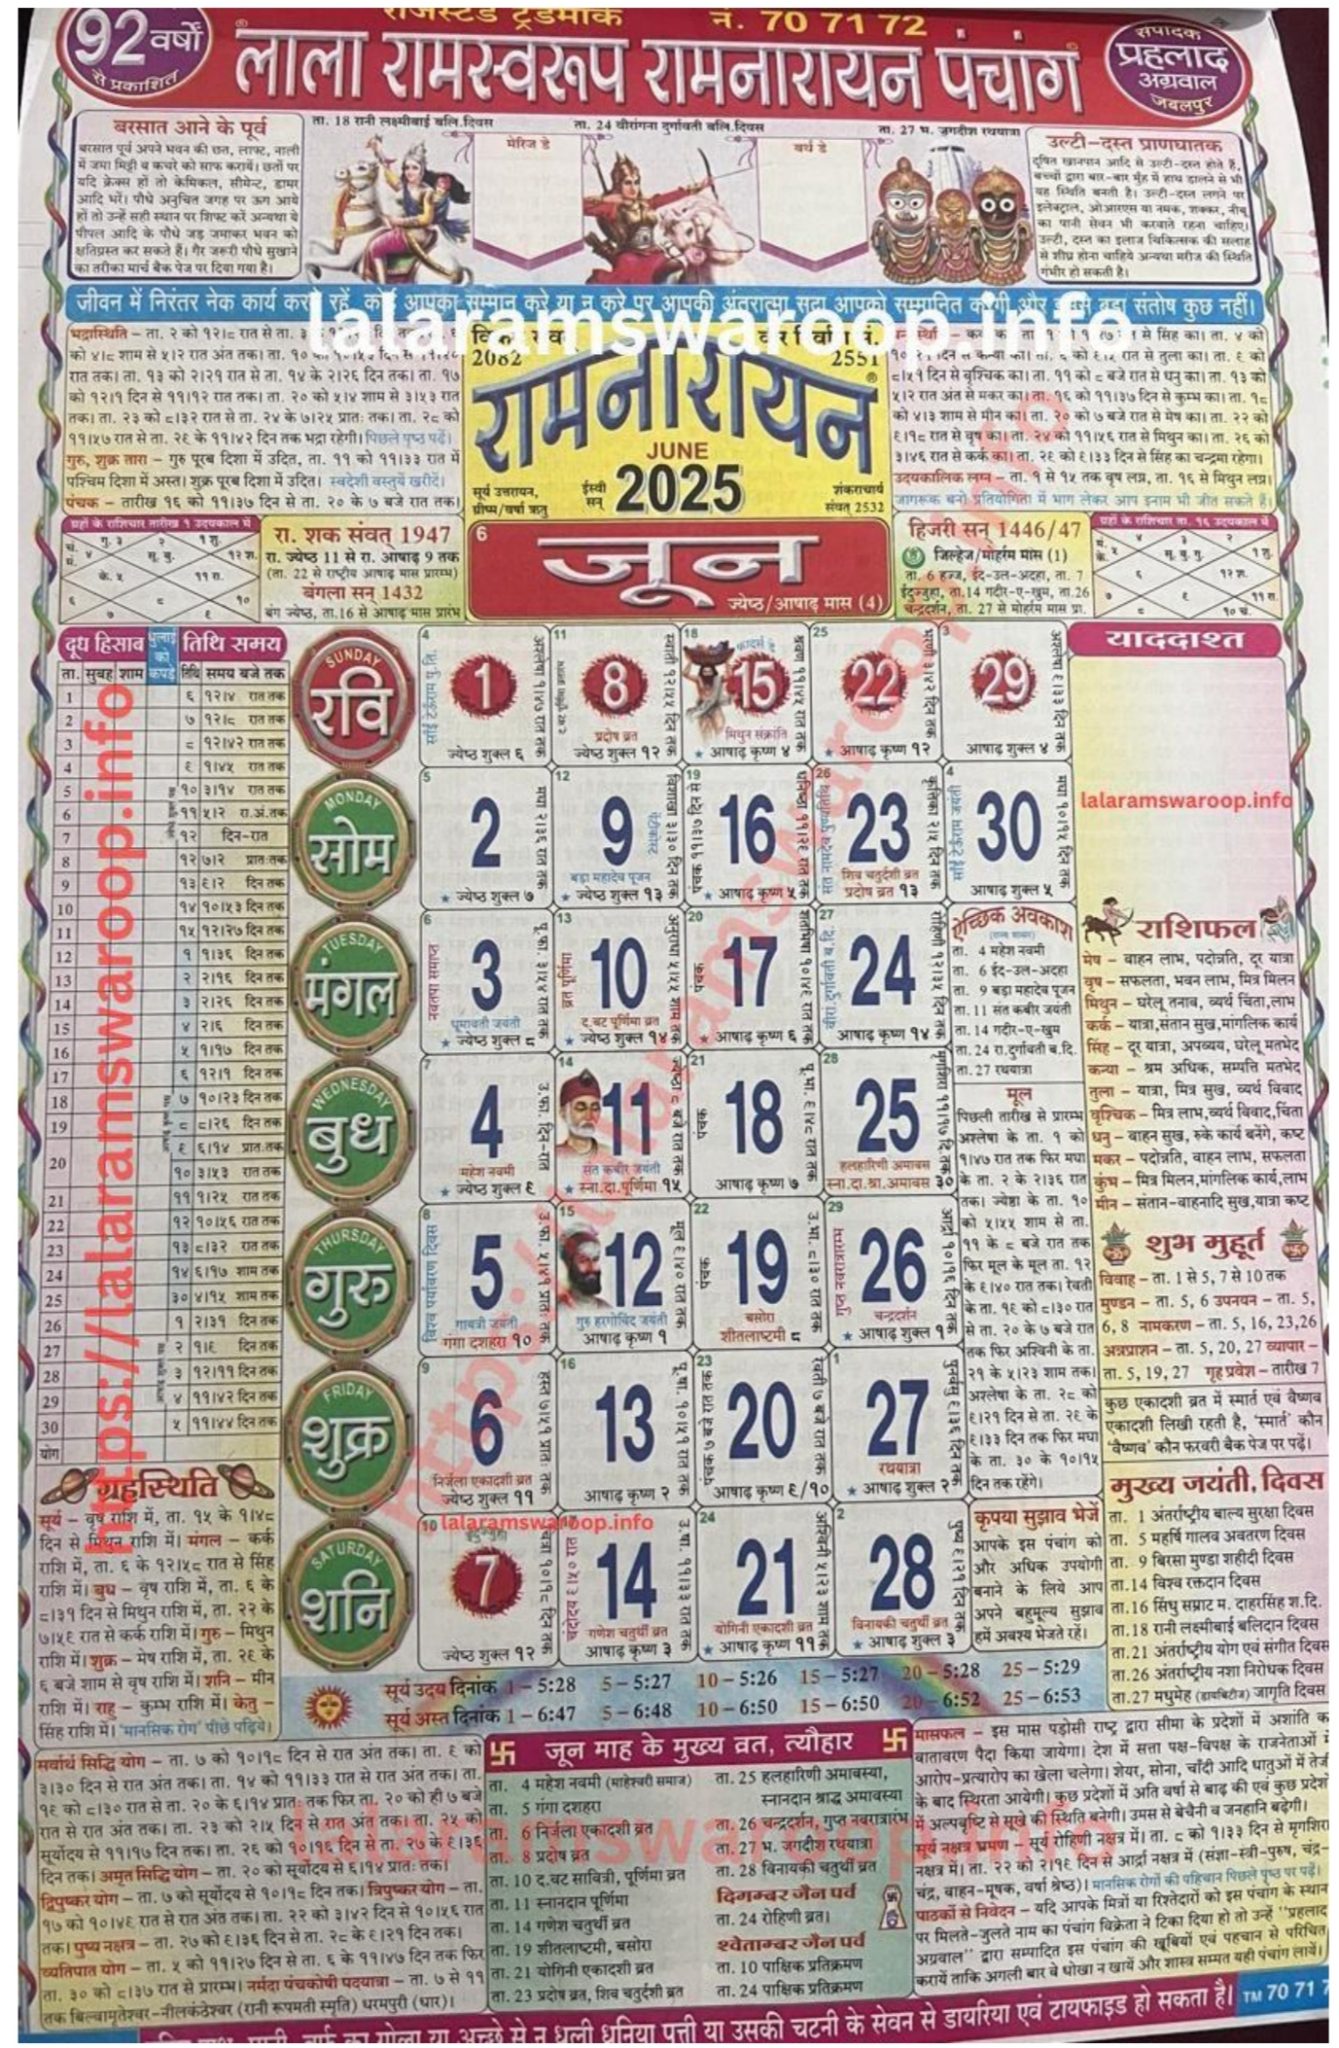 रजिस्टर्ड ट्रेडमार्क नं. 70 71 72
92 वर्षों
से प्रकाशित
लाला रामस्वरूप रामनारायन पंचांग
संपादक
प्रहलाद
अग्रवाल
जबलपुर
बरसात आने के पूर्व
बरसात पूर्व अपने भवन की छत, लाफ्ट, नाली
में जमा मिट्टी व कचरे को साफ करायें। छतों पर
यदि क्रेक्स हों तो केमिकल, सीमेन्ट, डामर
आदि भरें। पौधे अनुचित जगह पर ऊग आये
हों तो उन्हें सही स्थान पर शिफ्ट करें अन्यथा ये
पीपल आदि के पौधे जड़ जमाकर भवन को
क्षतिग्रस्त कर सकते हैं। गैर जरूरी पौधे सुखाने
का तरीका मार्च बैक पेज पर दिया गया है।
ता. 18 रानी लक्ष्मीबाई बलि.दिवस
मेरिज डे
ता. 24 वीरांगना दुर्गावती बलि.दिवस
बर्थ डे
ता. 27 भ. जगदीश रथयात्रा
उल्टी-दस्त प्राणघातक
दूषित खानपान आदि से उल्टी-दस्त होते हैं,
बच्चों द्वारा बार-बार मुँह में हाथ डालने से भी
यह स्थिति बनती है। उल्टी-दस्त लगने पर
इलेक्ट्राल, ओआरएस या नमक, शक्कर, नींबू
का पानी सेवन भी करवाते रहना चाहिए।
उल्टी, दस्त का इलाज चिकित्सक की सलाह
से शीघ्र होना चाहिये अन्यथा मरीज की स्थिति
गंभीर हो सकती है।
जीवन में निरंतर नेक कार्य करते रहें, कोई आपका सम्मान करे या न करे पर आपकी अंतरात्मा सदा आपको सम्मानित करेगी और इससे बड़ा संतोष कुछ नहीं।
lalaramswaroop.info
2082
2551
रामनारायन
JUNE
2025
सूर्य उत्तरायन,
ग्रीष्म/वर्षा ऋतु
ईस्वी
सन्
शंकराचार्य
संवत् 2532
6
जून
ज्येष्ठ/आषाढ़ मास (4)
गुरु, शुक्र तारा – गुरु पूरब दिशा में उदित, ता. ११ को ११।३३ रात में
पश्चिम दिशा में अस्त। शुक्र पूरब दिशा में उदित। स्वदेशी वस्तुयें खरीदें।
पंचक – तारीख १६ को ११।३७ दिन से ता. २० के ७ बजे रात तक।
उदयकालिक लग्न – ता. १ से १५ तक वृष लग्न, ता. १६ से मिथुन लग्न।
जागरूक बनो प्रतियोगिता में भाग लेकर आप इनाम भी जीत सकते हैं।
ग्रहों के राशिचार तारीख १ उदयकाल में
रा. शक संवत् 1947
रा. ज्येष्ठ 11 से रा. आषाढ़ 9 तक
(ता. 22 से राष्ट्रीय आषाढ़ मास प्रारम्भ)
बंगला सन् 1432
बंग ज्येष्ठ, ता.16 से आषाढ़ मास प्रारंभ
हिजरी सन् 1446/47
जिल्हेज/मोहर्रम मास (1)
ता. 6 हज्ज, ईद-उल-अदहा, ता. 7
ईदुज्जुहा, ता.14 गदीर-ए-खुम, ता.26
चन्द्रदर्शन, ता. 27 से मोहर्रम मास प्रा.
ग्रहों के राशिचार ता. १६ उदयकाल में
दूध हिसाब
धुलाई को कपड़े
तिथि समय
ता. सुबह शाम तिथि समय बजे तक
1 ६ १२।४ रात तक
2 ७ १२।८ रात तक
3 ८ १२।४२ रात तक
4 ९ १।४५ रात तक
5 १० ३।१४ रात तक
6 ११ ५।२ रा.अं.तक
7 १२ दिन-रात
8 १२ ७।२ प्रातःतक
9 १३ ९।२ दिन तक
10 १४ १०।५३ दिन तक
11 १५ १२।२७ दिन तक
12 १ १।३६ दिन तक
13 २ २।१६ दिन तक
14 ३ २।२६ दिन तक
15 ४ २।६ दिन तक
16 ५ १।१७ दिन तक
17 ६ १२।१ दिन तक
18 ७ १०।२३ दिन तक
19 ८ ८।२६ दिन तक
20 ९ ६।१४ प्रातः तक
१० ३।५३ रात तक
21 ११ १।२५ रात तक
22 १२ १०।५६ रात तक
23 १३ ८।३२ रात तक
24 १४ ६।१७ शाम तक
25 ३० ४।१५ शाम तक
26 १ २।३१ दिन तक
27 २ १।९ दिन तक
28 ३ १२।११ दिन तक
29 ४ ११।४२ दिन तक
30 ५ ११।४४ दिन तक
योग
https://lalaramswaroop.info
SUNDAY
रवि
4 1 ज्येष्ठ शुक्ल ६
11 8 प्रदोष व्रत ज्येष्ठ शुक्ल १२
18 फादर्स डे 15 मिथुन संक्रांति आषाढ़ कृष्ण ४
25 22 आषाढ़ कृष्ण १२
3 29 आषाढ़ शुक्ल ४
MONDAY
सोम
5 2 ज्येष्ठ शुक्ल ७
12 9 बड़ा महादेव पूजन ज्येष्ठ शुक्ल १३
19 16 आषाढ़ कृष्ण ५
26 23 शिव चतुर्दशी व्रत प्रदोष व्रत १३
4 30 आषाढ़ शुक्ल ५
TUESDAY
मंगल
6 नवतपा समाप्त 3 धूमावती जयंती ज्येष्ठ शुक्ल ८
13 व्रत पूर्णिमा 10 द.वट पूर्णिमा व्रत ज्येष्ठ शुक्ल १४
20 पंचक 17 आषाढ़ कृष्ण ६
27 24 आषाढ़ कृष्ण १४
WEDNESDAY
बुध
7 4 महेश नवमी ज्येष्ठ शुक्ल ९
14 11 संत कबीर जयंती स्ना.दा.पूर्णिमा १५
21 पंचक 18 आषाढ़ कृष्ण ७
28 25 हलहारिणी अमावस स्ना.दा.श्रा.अमावस ३०
THURSDAY
गुरु
8 विश्व पर्यावरण दिवस 5 गायत्री जयंती गंगा दशहरा १०
15 12 गुरु हरगोबिंद जयंती आषाढ़ कृष्ण १
22 पंचक 19 बसोरा शीतलाष्टमी ८
29 गुप्त नवरात्रारंभ 26 चन्द्रदर्शन आषाढ़ शुक्ल १
FRIDAY
शुक्र
9 6 निर्जला एकादशी व्रत ज्येष्ठ शुक्ल ११
16 13 आषाढ़ कृष्ण २
23 पंचक ७ बजे रात तक 20 आषाढ़ कृष्ण ९/१०
1 27 रथयात्रा आषाढ़ शुक्ल २
SATURDAY
शनि
10 7 ज्येष्ठ शुक्ल १२
14 गणेश चतुर्थी व्रत आषाढ़ कृष्ण ३
24 21 योगिनी एकादशी व्रत आषाढ़ कृष्ण ११
2 28 विनायकी चतुर्थी व्रत आषाढ़ शुक्ल ३
lalaramswaroop.info
याददाश्त
lalaramswaroop.info
ऐच्छिक अवकाश
ता. 4 महेश नवमी
ता. 6 ईद-उल-अदहा
ता. 9 बड़ा महादेव पूजन
ता. 11 संत कबीर जयंती
ता. 14 गदीर-ए-खुम
ता. 24 रा.दुर्गावती ब.दि.
ता. 27 रथयात्रा
मूल
पिछली तारीख से प्रारम्भ
अश्लेषा के ता. १ को
१।४७ रात तक फिर मघा
के ता. २ के २।३६ रात
तक। ज्येष्ठा के ता. १०
को ५।५५ शाम से ता.
११ के ८ बजे रात तक
फिर मूल के मूल ता. १२
के ९।४० रात तक। रेवती
के ता. १९ को ८।३० रात
से ता. २० के ७ बजे रात
तक फिर अश्विनी के ता.
२१ के ५।२३ शाम तक।
अश्लेषा के ता. २८ को
९।२१ दिन से ता. २९ के
९।३३ दिन तक फिर मघा
के ता. ३० के १०।१५
दिन तक रहेंगे।
कृपया सुझाव भेजें
आपके इस पंचांग को
और अधिक उपयोगी
बनाने के लिये आप
अपने बहुमूल्य सुझाव
हमें अवश्य भेजते रहें।
राशिफल
मेष – वाहन लाभ, पदोन्नति, दूर यात्रा
वृष – सफलता, भवन लाभ, मित्र मिलन
मिथुन – घरेलू तनाव, व्यर्थ चिंता,लाभ
कर्क – यात्रा,संतान सुख,मांगलिक कार्य
सिंह – दूर यात्रा, अपव्यय, घरेलू मतभेद
कन्या – श्रम अधिक, सम्पत्ति मतभेद
तुला – यात्रा, मित्र सुख, व्यर्थ विवाद
वृश्चिक – मित्र लाभ,व्यर्थ विवाद,चिंता
धनु – वाहन सुख, रुके कार्य बनेंगे, कष्ट
मकर – पदोन्नति, वाहन लाभ, सफलता
कुंभ – मित्र मिलन,मांगलिक कार्य,लाभ
मीन – संतान-वाहनादि सुख,यात्रा कष्ट
शुभ मुहूर्त
विवाह – ता. 1 से 5, 7 से 10 तक
मुण्डन – ता. 5, 6 उपनयन – ता. 5,
6, 8 नामकरण – ता. 5, 16, 23,26
अन्नप्राशन – ता. 5, 20, 27 व्यापार –
ता. 5, 19, 27 गृह प्रवेश – तारीख 7
कुछ एकादशी व्रत में स्मार्त एवं वैष्णव
एकादशी लिखी रहती है, 'स्मार्त' कौन
'वैष्णव' कौन फरवरी बैक पेज पर पढ़ें।
मुख्य जयंती, दिवस
ता. 1 अंतर्राष्ट्रीय बाल्य सुरक्षा दिवस
ता. 5 महर्षि गालव अवतरण दिवस
ता. 9 बिरसा मुण्डा शहीदी दिवस
ता.14 विश्व रक्तदान दिवस
ता.16 सिंधु सम्राट म. दाहरसिंह श.दि.
ता.18 रानी लक्ष्मीबाई बलिदान दिवस
ता.21 अंतर्राष्ट्रीय योग एवं संगीत दिवस
ता.26 अंतर्राष्ट्रीय नशा निरोधक दिवस
ता.27 मधुमेह (डायबिटीज) जागृति दिवस
ग्रहस्थिति
सूर्य – वृष राशि में, ता. १५ के ९।४८
दिन से मिथुन राशि में। मंगल – कर्क
राशि में, ता. ६ के १२।५८ रात से सिंह
राशि में। बुध – वृष राशि में, ता. ६ के
८।३१ दिन से मिथुन राशि में, ता. २२ के
७।५९ रात से कर्क राशि में। गुरु – मिथुन
राशि में। शुक्र – मेष राशि में, ता. २९ के
६ बजे शाम से वृष राशि में। शनि – मीन
राशि में। राहु – कुम्भ राशि में। केतु –
सिंह राशि में। 'मानसिक रोग' पीछे पढ़िये।
सूर्य उदय दिनांक 1 – 5:28 5 – 5:27 10 – 5:26 15 – 5:27 20 – 5:28 25 – 5:29
सूर्य अस्त दिनांक 1 – 6:47 5 – 6:48 10 – 6:50 15 – 6:50 20 – 6:52 25 – 6:53
सर्वार्थ सिद्धि योग – ता. ७ को १०।१८ दिन से रात अंत तक। ता. ९ को
३।३० दिन से रात अंत तक। ता. १४ को ११।३३ रात से रात अंत तक। ता.
१९ को ८।३० रात से ता. २० के ६।१४ प्रातः तक फिर ता. २० को ही ७ बजे
रात से रात अंत तक। ता. २३ को २।५ दिन से रात अंत तक। ता. २५ को
सूर्योदय से ११।१७ दिन तक। ता. २६ को १०।१६ दिन से ता. २७ के ९।३६
दिन तक। अमृत सिद्धि योग – ता. २० को सूर्योदय से ६।१४ प्रातः तक।
द्विपुष्कर योग – ता. ७ को सूर्योदय से १०।१८ दिन तक। त्रिपुष्कर योग – ता.
१७ को १०।४६ रात से रात अंत तक। ता. २२ को ३।४२ दिन से १०।५६ रात
तक। पुष्य नक्षत्र – ता. २७ को ९।३६ दिन से ता. २८ के ९।२१ दिन तक।
व्यतिपात योग – ता. ५ को ११।२७ दिन से ता. ६ के ११।४७ दिन तक फिर
ता. ३० को ८।३७ रात से प्रारम्भ। नर्मदा पंचकोषी पदयात्रा – ता. ७ से ११
तक बिल्वामृतेश्वर-नीलकंठेश्वर (रानी रूपमती स्मृति) धरमपुरी (धार)।
जून माह के मुख्य व्रत, त्यौहार
ता. 4 महेश नवमी (माहेश्वरी समाज)
ता. 5 गंगा दशहरा
ता. 6 निर्जला एकादशी व्रत
ता. 8 प्रदोष व्रत
ता. 10 द.वट सावित्री, पूर्णिमा व्रत
ता. 11 स्नानदान पूर्णिमा
ता. 14 गणेश चतुर्थी व्रत
ता. 19 शीतलाष्टमी, बसोरा
ता. 21 योगिनी एकादशी व्रत
ता. 23 प्रदोष व्रत, शिव चतुर्दशी व्रत
ता. 25 हलहारिणी अमावस्या,
स्नानदान श्राद्ध अमावस्या
ता. 26 चन्द्रदर्शन, गुप्त नवरात्रारंभ
ता. 27 भ. जगदीश रथयात्रा
ता. 28 विनायकी चतुर्थी व्रत
दिगम्बर जैन पर्व
ता. 24 रोहिणी व्रत।
श्वेताम्बर जैन पर्व
ता. 10 पाक्षिक प्रतिक्रमण
ता. 24 पाक्षिक प्रतिक्रमण
मासफल – इस मास पड़ोसी राष्ट्र द्वारा सीमा के प्रदेशों में अशांति क
वातावरण पैदा किया जायेगा। देश में सत्ता पक्ष-विपक्ष के राजनेताओं में
आरोप-प्रत्यारोप का खेला चलेगा। शेयर, सोना, चाँदी आदि धातुओं में तेजी
के बाद स्थिरता आयेगी। कुछ प्रदेशों में अति वर्षा से बाढ़ की एवं कुछ प्रदेशों
में अल्पवृष्टि से सूखे की स्थिति बनेगी। उमस से बेचैनी व जनहानि बढ़ेगी।
सूर्य नक्षत्र भ्रमण – सूर्य रोहिणी नक्षत्र में। ता. ८ को १।३३ दिन से मृगशिरा
नक्षत्र में। ता. २२ को २।१९ दिन से आर्द्रा नक्षत्र में (संज्ञा-स्त्री-पुरुष, चंद्र-
चंद्र, वाहन-मूषक, वर्षा श्रेष्ठ)। मानसिक रोगों की पहिचान पिछले पृष्ठ पर पढ़ें।
पाठकों से निवेदन – यदि आपके मित्रों या रिश्तेदारों को इस पंचांग के स्थान
पर मिलते-जुलते नाम का पंचांग विक्रेता ने टिका दिया हो तो उन्हें "प्रहलाद
अग्रवाल" द्वारा सम्पादित इस पंचांग की खूबियों एवं पहचान से परिचित
करायें ताकि अगली बार वे धोखा न खायें और शास्त्र सम्मत यही पंचांग लायें।
या अच्छे से न धुली धनिया पत्ती या उसकी चटनी के सेवन से डायरिया एवं टायफाइड हो सकता है।
TM 70 71 7